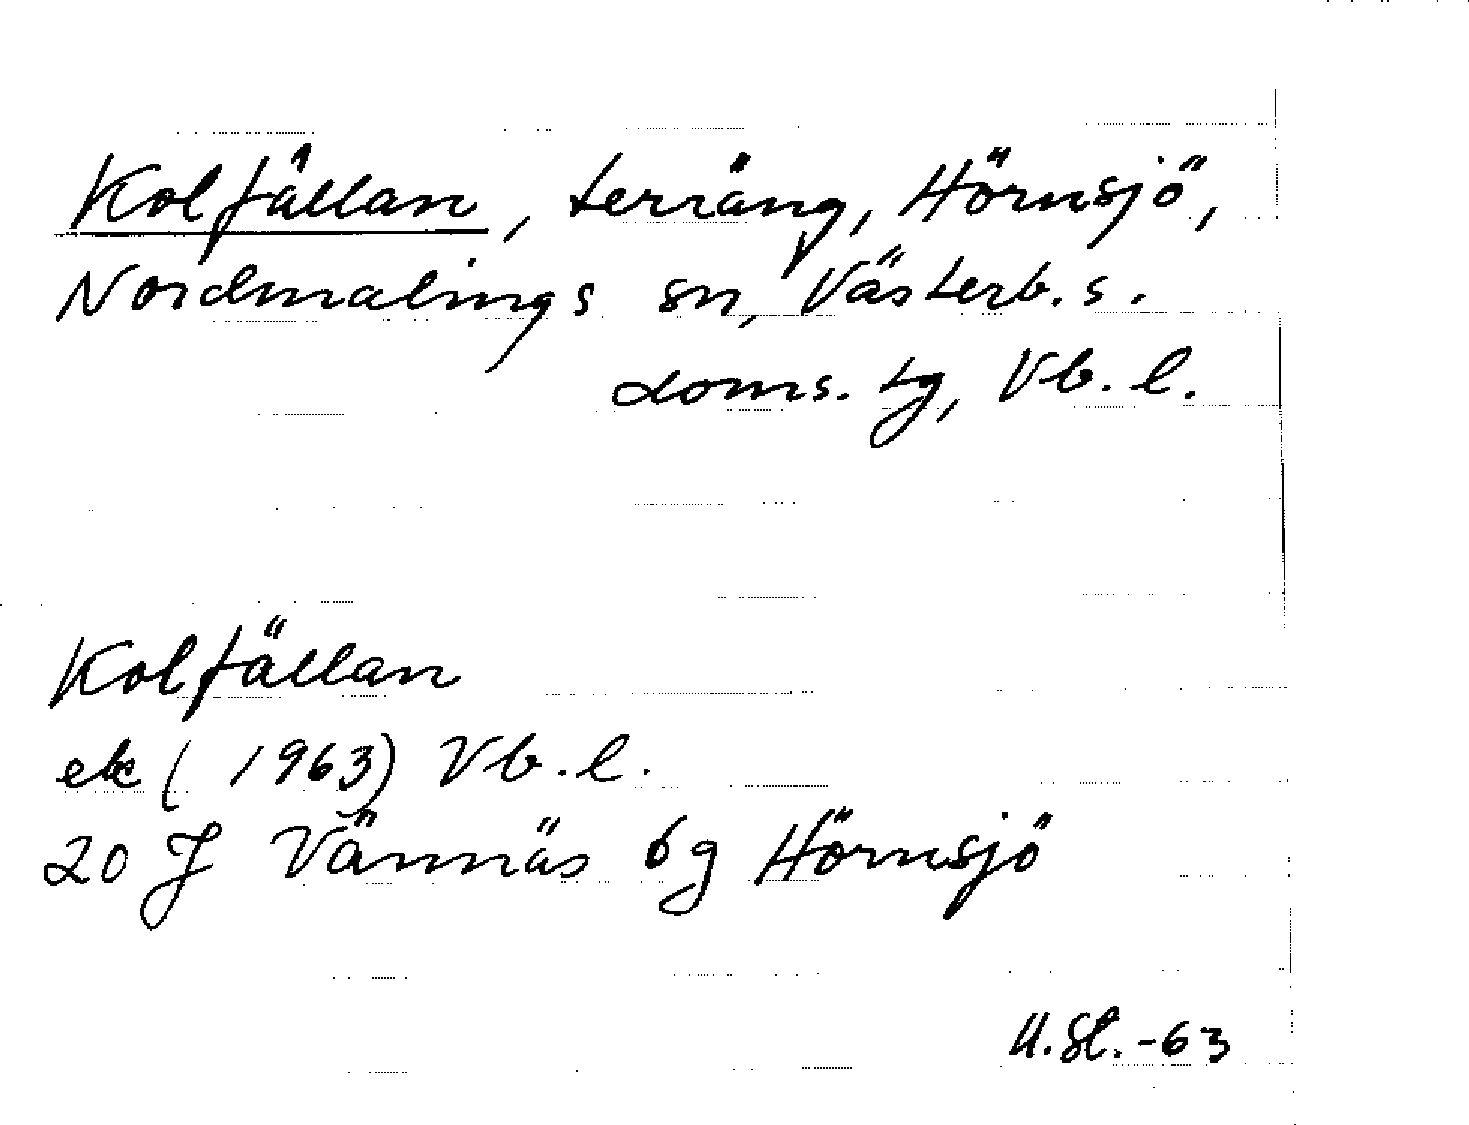 Kolfällan, terräng, Hörnsjö,
Nordmalings sn, Västerb. s.
doms. tg, Vb. l.
Kolfällan
ek (1963) Vb. l.
20 J Vännäs 6g Hörnsjö
-63